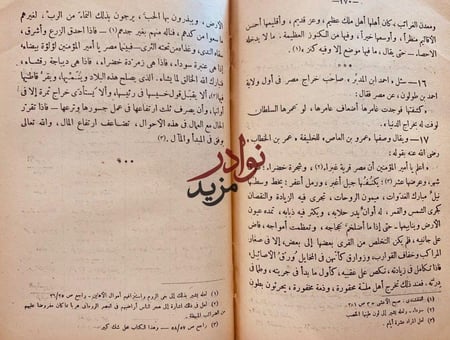 — ١٧٠ —
ومعدن الغرائب، كان أهلها أهل ملك عظيم، وعز قديم، وأقليمها أحسن
الأقاليم منظراً، وأوسعها خيراً، فيها من الكنوز العظيمة، ما لا يدخله
الاحصاء — حتى يقال، ما فيها موضع إلا وفيه كنز.
١٦ — سئل، احمد ابن المدبر، صاحب خراج مصر في أول ولاية
احمد بن طولون، عن مصر فقال:
— كشفتها فوجدت غامرها أضعاف عامرها، لو عمرها السلطان
لوفت له بخراج الدنيا.
١٧ — ويقال وصفها «عمرو بن العاص» للخليفة «عمر بن الخطاب»
رضي الله عنه بقوله:
— اعلم يا أمير المؤمنين أن مصر قرية غبراء (٢)، وشجرة خضراء؛ طولها
شهر، وعرضها عشر (٣)؛ يكنفها جبل أغبر، ورمل أعفر؛ يخط وسطها
نيل مبارك الغدوات، ميمون الروحات، تجري فيه الزيادة والنقصان
كجري الشمس والقمر، له أوان يدر حلابه، ويكثر فيه ذبابه، تمده عيون
الأرض وينابيعها — حتى إذا ما اضلخم عجاجه، وتعظمت أمواجه، فاض
على جانبيه، فلم يمكن التخلص من القرى بعضها إلى بعض، إلا في صغار
المراكب وخفاف القوارب، وزوارق كأنهن في المخايل ورق الأصائل؛
فاذا تكامل في زيادته، نكص على عقبيه، كأول ما بدأ في جريته، وطما في
درته. فعند ذلك تخرج أهل ملة محقورة، وذمة مخفورة، يحرثون بطون
(١) القلقشندي، صبح الأعشى، ج ٣ ص ٢٨١
(٢) سوداء، لعله يشير إلى لون طينها الخصب
(٣) لعل المراد عشرة أيام.
الأرض، ويبذرون بها الحب، يرجون بذلك النماء من الرب، لغيرهم
ما سعوا من كدهم، فناله منهم بغير جدهم (١) — فاذا أحدق الزرع وأشرق،
سقاه الندى، وغذاه من تحته الثرى — فبينما مصر يا أمير المؤمنين لؤلؤة بيضاء،
إذا هي عنبرة سوداء، فاذا هي زمردة خضراء، فاذا هي ديباجة رقشاء،
فتبارك الله الخالق لما يشاء. الذي يصلح هذه البلاد وينميها، ويقر قاطنيها
فيها (٢) ألا يقبل قول خسيسها في رئيسها، وألا يستأدى خراج ثمرة إلا في
أوانها، وأن يصرف ثلث ارتفاعها في عمل جسورها وترعها — فاذا تقرر
الحال مع العمال في هذه الأحوال، تضاعف ارتفاع المال، والله تعالى
يوفق في المبدأ والمآل.
نوادر
مزيد